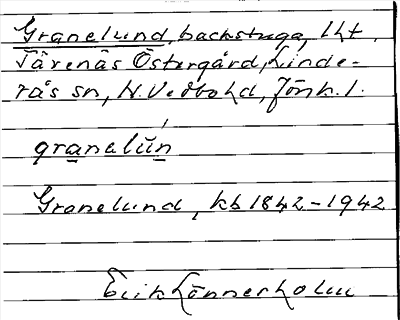 Granelund, backstuga, lht.
Tärenäs Östergård, Linde-
rås sn, N. Vedbo hd, Jönk. l.
granelún
Granelund, kb 1842-1942
Erik Lönnerholm